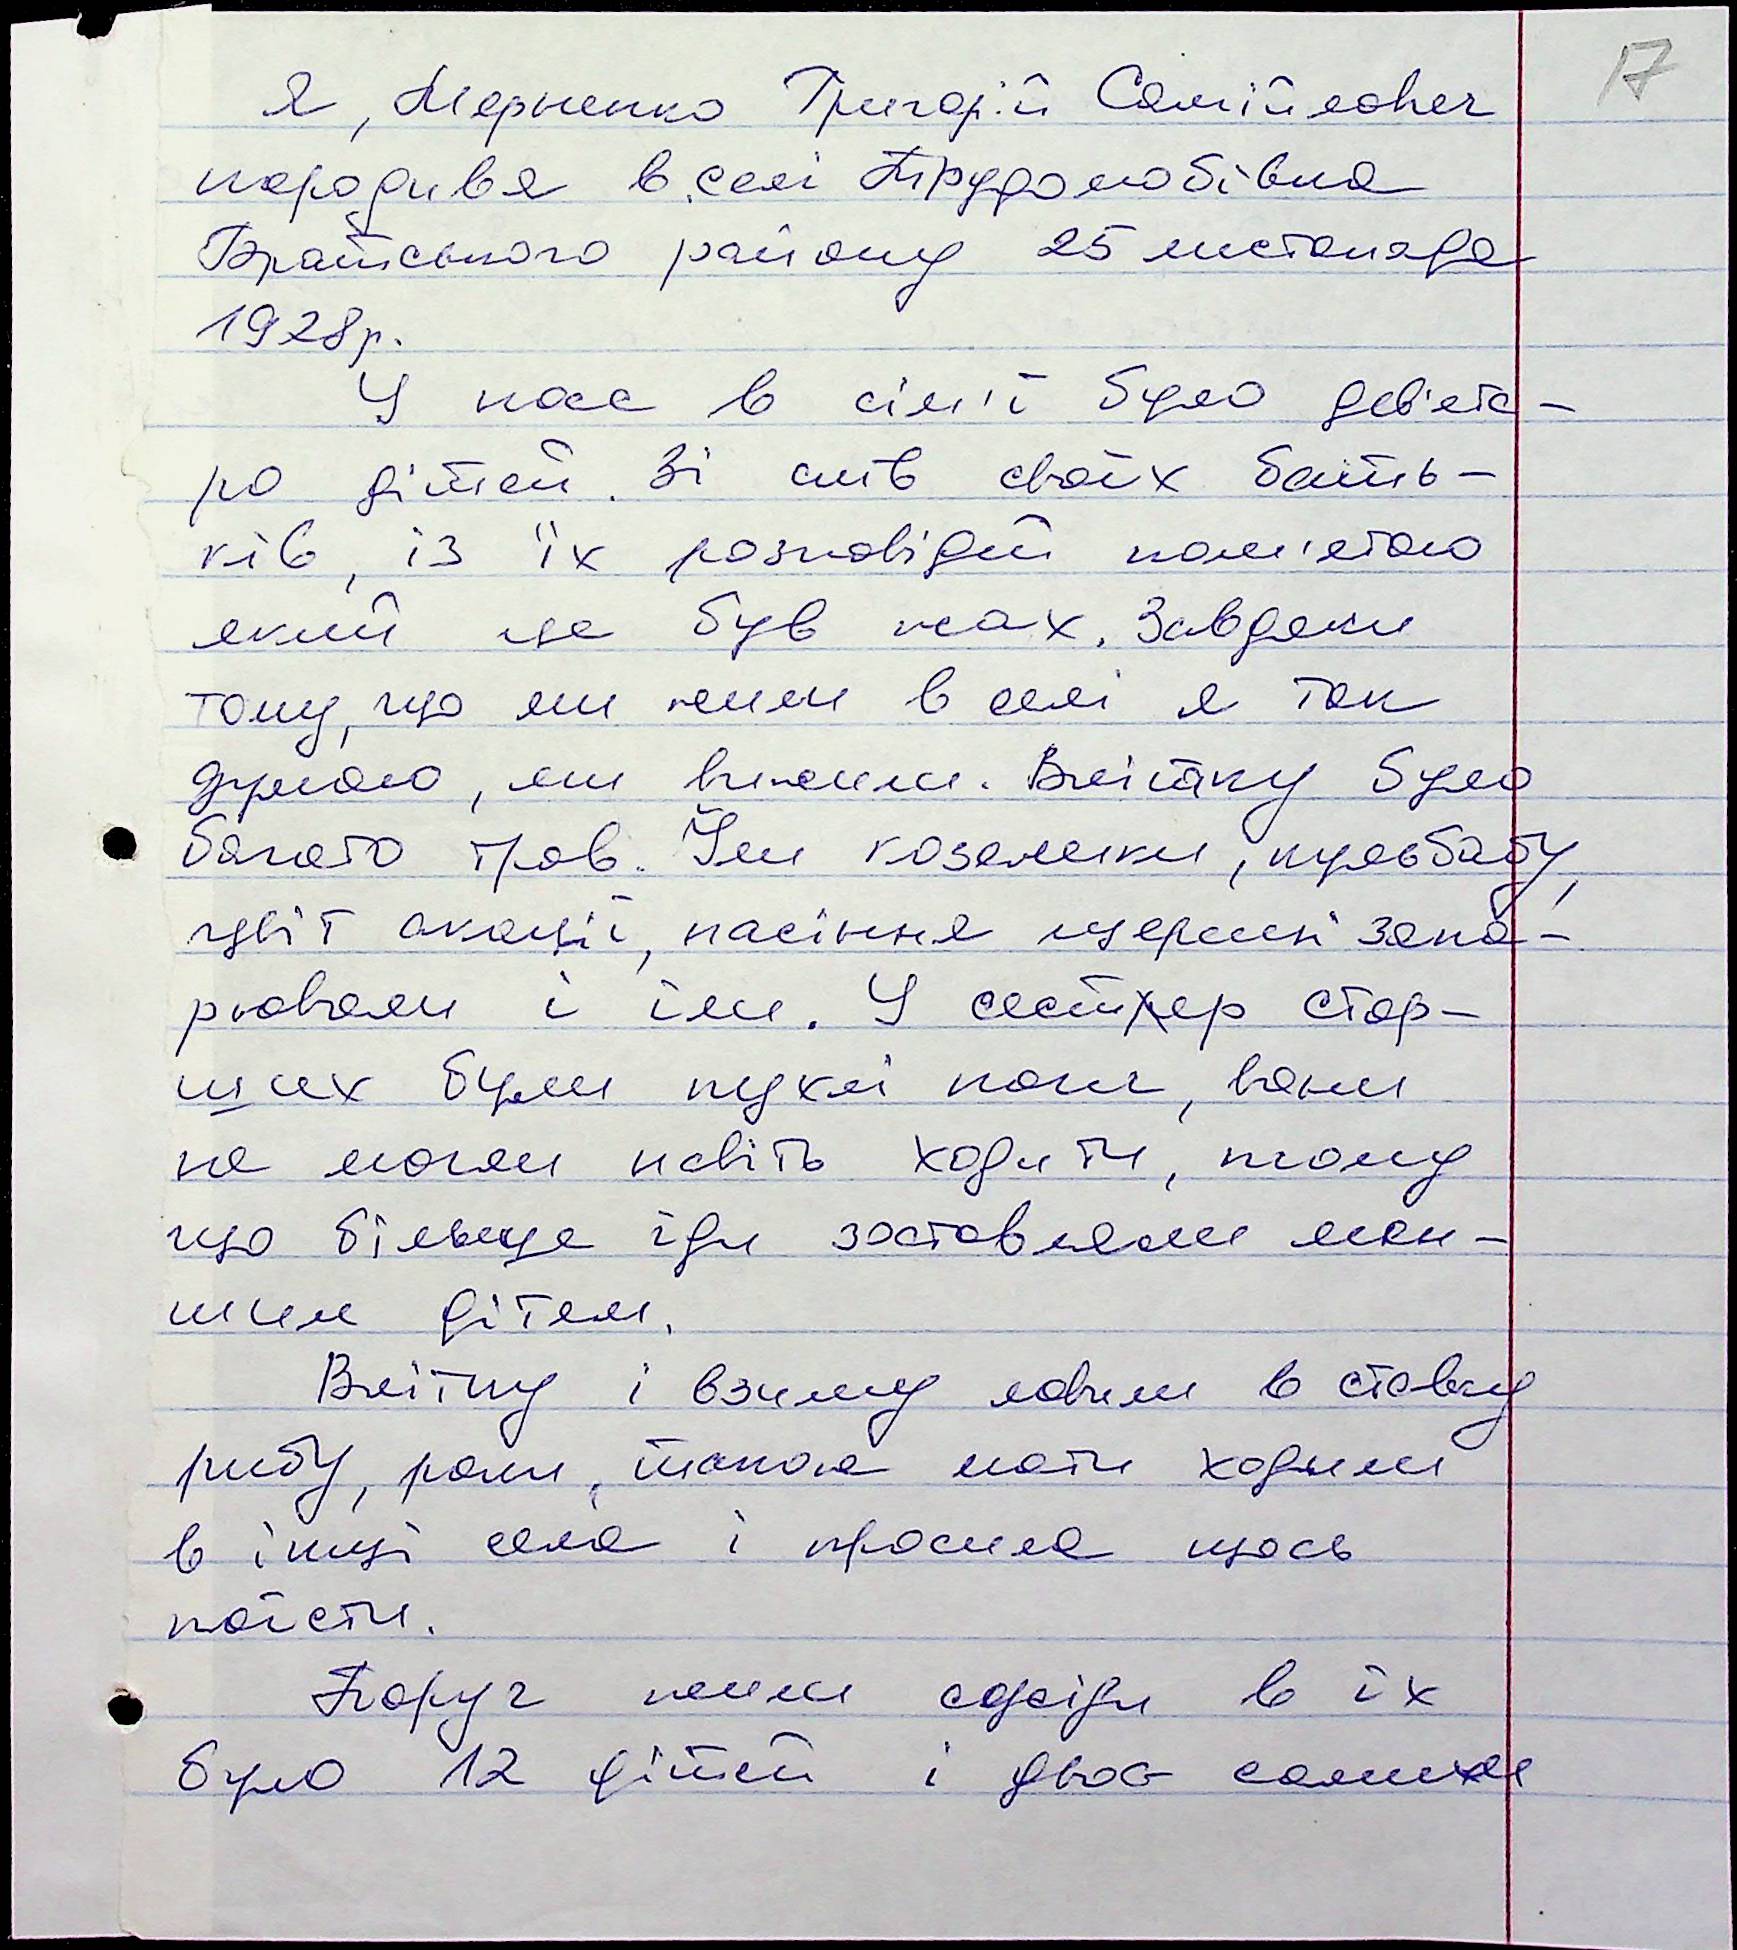 17
Я, Мерненко Григорій Самійлович
народився в селі Трудолюбівка
Братського району 25 листопада
1928р.
У нас в сім'ї було дев'ятє-
ро дітей. Зі слів своїх бать-
ків, із їх розповідей пам'ятаю
який це був жах. Завдяки
тому, що ми жили в селі я так
думаю, ми вижили. Влітку було
багато трав. Їли козелики, кульбабу,
цвіт акації, насіння щериці запа-
рювали і їли. У сестер стар-
ших були пухлі ноги, вони
не могли навіть ходити, тому
що більше їди заставляли мен-
шим дітям.
Влітку і взимку ловили в ставку
рибу, раки, також мати ходили
в інші села і просила щось
поїсти.
Поруч жили сусіди в їх
було 12 дітей і двоє